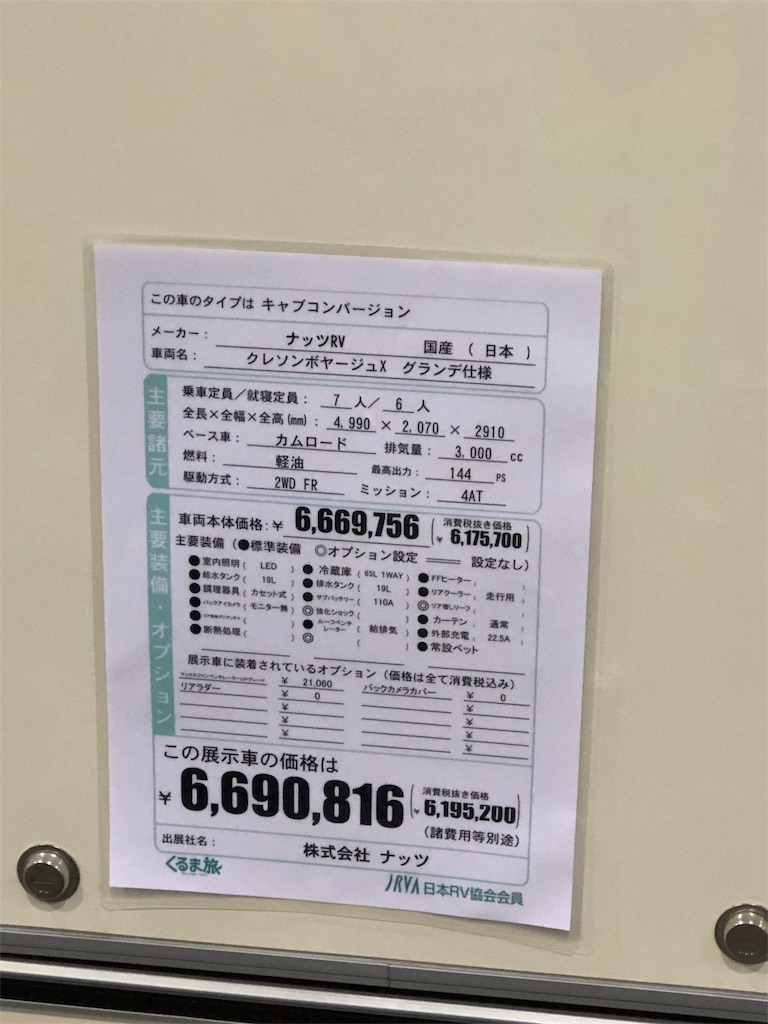 この車のタイプは キャブコンバージョン
メーカー： ナッツRV 国産 （ 日本 ）
車両名： クレソンボヤージュX グランデ仕様
主要諸元
乗車定員／就寝定員： 7 人／ 6 人
全長×全幅×全高(mm)： 4,990 × 2,070 × 2910
ベース車： カムロード 排気量： 3,000 cc
燃料： 軽油 最高出力： 144 PS
駆動方式： 2WD FR ミッション： 4AT
主要装備・オプション
車両本体価格：￥ 6,669,756 （消費税抜き価格 ￥ 6,175,700）
主要装備（●標準装備 ◎オプション設定 ―― 設定なし）
●室内照明（ LED ） ●冷蔵庫（65L 1WAY） ●FFヒーター（ ）
●給水タンク（ 19L ） ●排水タンク（ 19L ） ●リアクーラー（ 走行用 ）
●調理器具（ カセット式 ） ●サブバッテリー（ 110A ） ◎リア増しリーフ（ ）
●バックアイカメラ（ モニター無 ） ◎強化ショック（ ） ●カーテン（ 通常 ）
● ●ルーフベンチレーター（ 給排気 ） ●外部充電（ 22.5A ）
●断熱処理（ ） ◎（ ） ●常設ベット
展示車に装着されているオプション（価格は全て消費税込み）
￥ 21,060 バックカメラカバー ￥ 0
リアラダー ￥ 0 ￥
￥ ￥
￥ ￥
￥ ￥
この展示車の価格は
￥ 6,690,816 （消費税抜き価格 ￥ 6,195,200）
（諸費用等別途）
出展社名： 株式会社 ナッツ
くるま旅
JRVA 日本RV協会会員